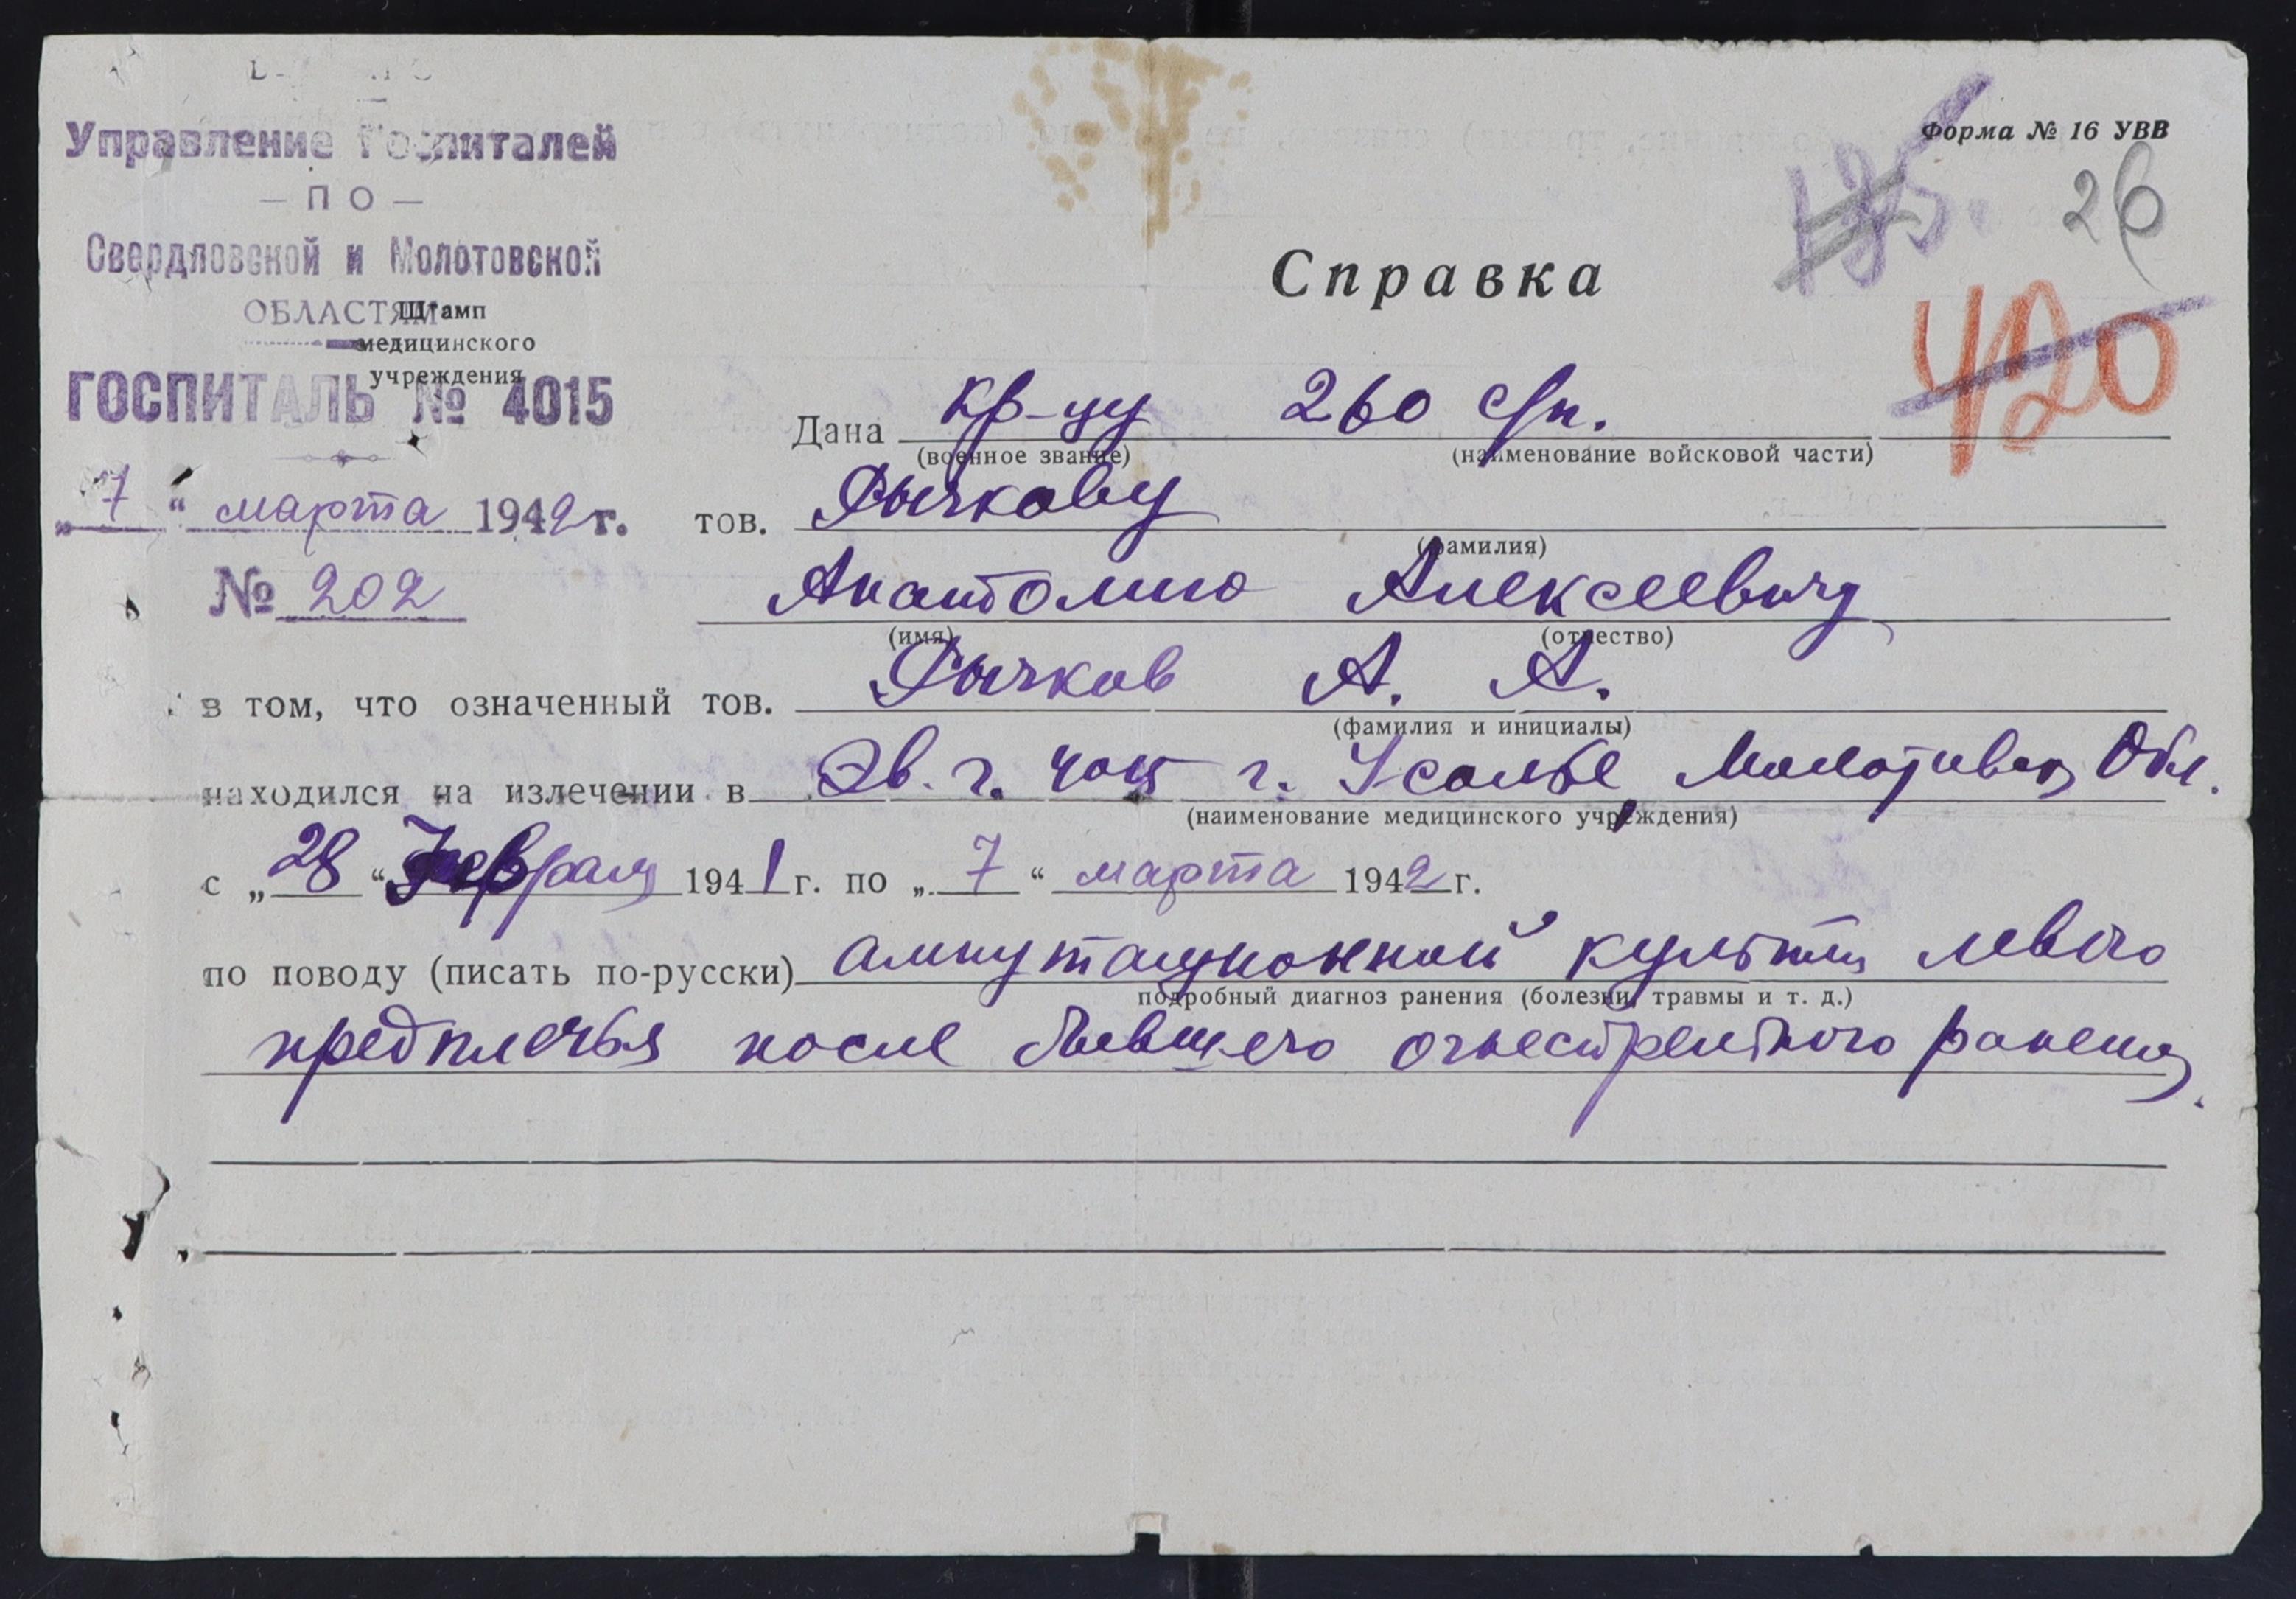 Управление Госпиталей
— ПО —
Свердловской и Молотовской
ОБЛАСТЯМ
Штамп
медицинского
учреждения
ГОСПИТАЛЬ № 4015
„7“ марта 1942 г.
№ 202
Форма № 16 УВВ
26
420
Справка
Дана кр-цу 260 с/п.
(военное звание) (наименование войсковой части)
тов. Рычкову
(фамилия)
Анатолию Алексеевичу
(имя) (отчество)
в том, что означенный тов. Рычков А. А.
(фамилия и инициалы)
находился на излечении в Эв. г. 4015 г. Усолье, Молотовск, Обл.
(наименование медицинского учреждения)
с „28“ Февраля 1941 г. по „7“ марта 1942 г.
по поводу (писать по-русски) ампутационной культи левого
подробный диагноз ранения (болезни, травмы и т. д.)
предплечья после бывшего огнестрельного ранения.